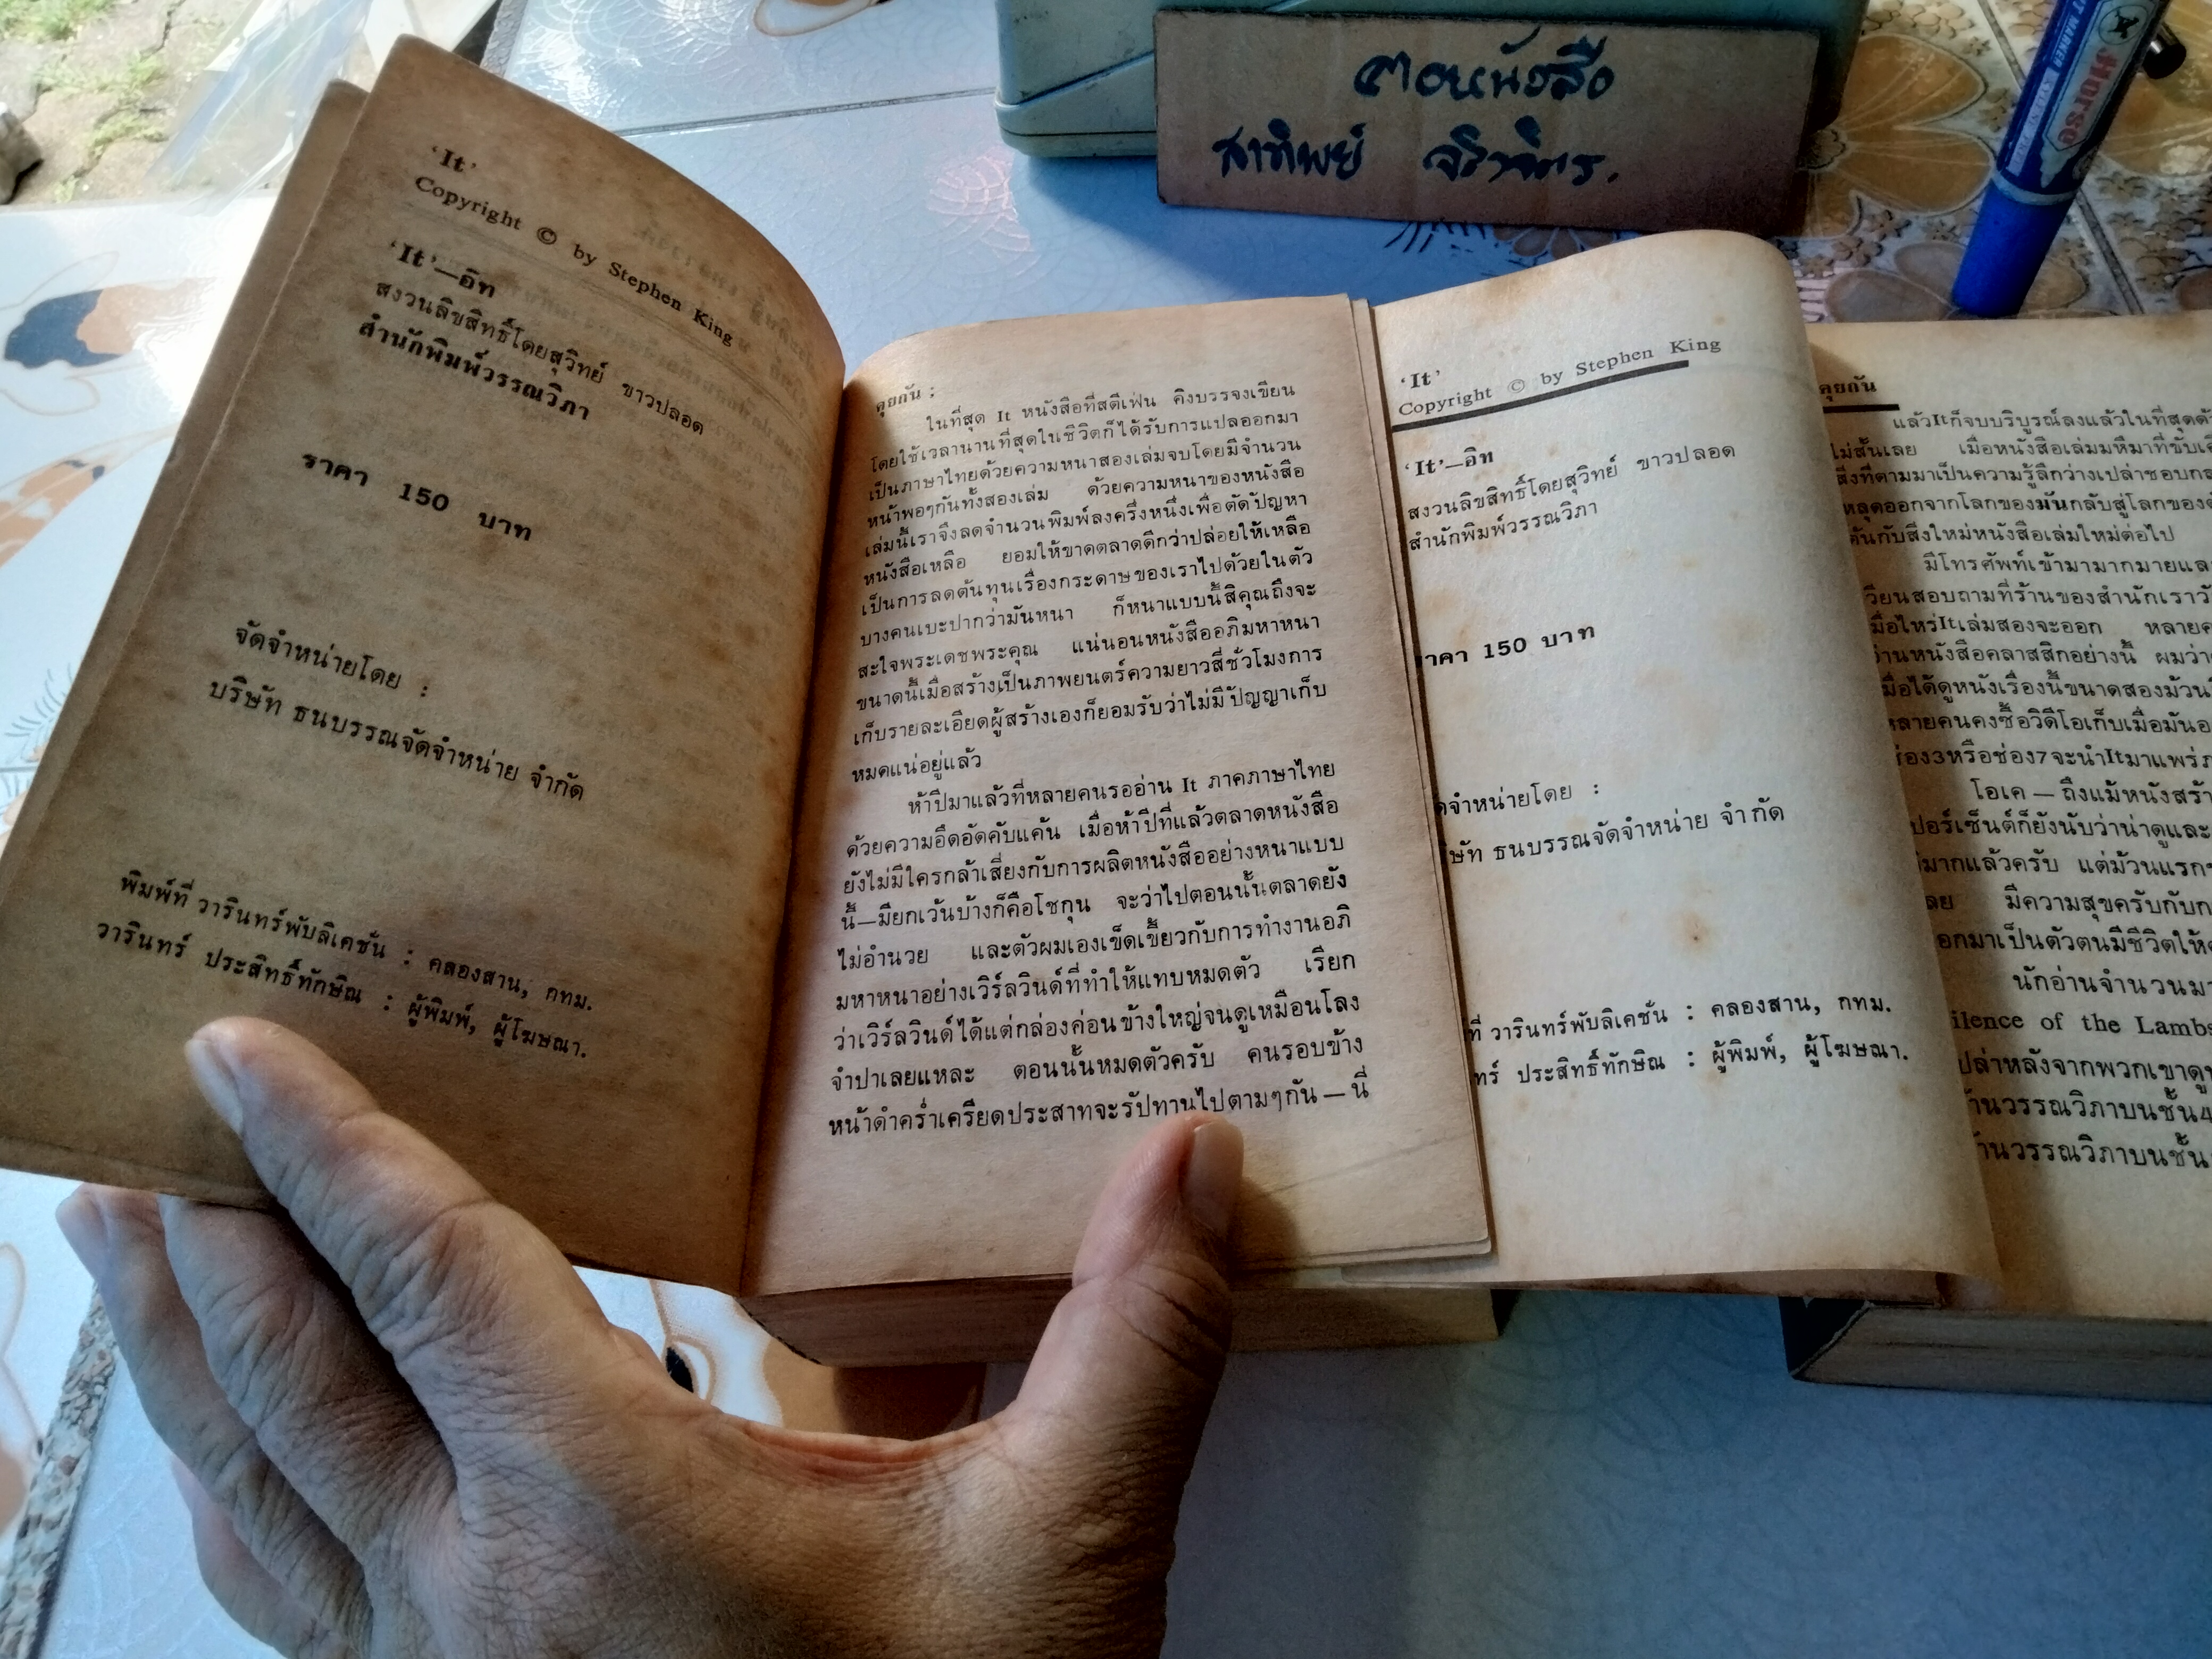 ตอบหังสือ
สาทิพย์
T MARKER
Horse
'It'
Copyright © by Stephen King
'It'—อิท
สงวนลิขสิทธิ์โดยสุวิทย์ ขาวปลอด
สำนักพิมพ์วรรณวิภา
ราคา 150 บาท
จัดจำหน่ายโดย :
บริษัท ธนบรรณจัดจำหน่าย จำกัด
พิมพ์ที่ วารินทร์พับลิเคชั่น : คลองสาน, กทม.
วารินทร์ ประสิทธิ์ทักษิณ : ผู้พิมพ์, ผู้โฆษณา.
คุยกัน :
ในที่สุด It หนังสือที่สตีเฟ่น คิงบรรจงเขียน
โดยใช้เวลานานที่สุดในชีวิตก็ได้รับการแปลออกมา
เป็นภาษาไทยด้วยความหนาสองเล่มจบโดยมีจำนวน
หน้าพอๆกันทั้งสองเล่ม ด้วยความหนาของหนังสือ
เล่มนี้เราจึงลดจำนวนพิมพ์ลงครึ่งหนึ่งเพื่อตัดปัญหา
หนังสือเหลือ ยอมให้ขาดตลาดดีกว่าปล่อยให้เหลือ
เป็นการลดต้นทุนเรื่องกระดาษของเราไปด้วยในตัว
บางคนเบะปากว่ามันหนา ก็หนาแบบนี้สิคุณถึงจะ
สะใจพระเดชพระคุณ แน่นอนหนังสืออภิมหาหนา
ขนาดนี้เมื่อสร้างเป็นภาพยนตร์ความยาวสี่ชั่วโมงการ
เก็บรายละเอียดผู้สร้างเองก็ยอมรับว่าไม่มีปัญญาเก็บ
หมดแน่อยู่แล้ว
ห้าปีมาแล้วที่หลายคนรออ่าน It ภาคภาษาไทย
ด้วยความอึดอัดคับแค้น เมื่อห้าปีที่แล้วตลาดหนังสือ
ยังไม่มีใครกล้าเสี่ยงกับการผลิตหนังสืออย่างหนาแบบ
นี้—มียกเว้นบ้างก็คือโชกุน จะว่าไปตอนนั้นตลาดยัง
ไม่อำนวย และตัวผมเองเข็ดเขี้ยวกับการทำงานอภิ
มหาหนาอย่างเวิร์ลวินด์ที่ทำให้แทบหมดตัว เรียก
ว่าเวิร์ลวินด์ได้แต่กล่องค่อนข้างใหญ่จนดูเหมือนโลง
จำปาเลยแหละ ตอนนั้นหมดตัวครับ คนรอบข้าง
หน้าดำคร่ำเครียดประสาทจะรัปทานไปตามๆกัน — นี่
'It'
Copyright © by Stephen King
'It'—อิท
สงวนลิขสิทธิ์โดยสุวิทย์ ขาวปลอด
สำนักพิมพ์วรรณวิภา
ราคา 150 บาท
จัดจำหน่ายโดย :
ษัท ธนบรรณจัดจำหน่าย จำกัด
ที่ วารินทร์พับลิเคชั่น : คลองสาน, กทม.
ทร์ ประสิทธิ์ทักษิณ : ผู้พิมพ์, ผู้โฆษณา.
คุยกัน
แล้วItก็จบบริบูรณ์ลงแล้วในที่สุดด้
ไม่สั้นเลย เมื่อหนังสือเล่มมหึมาที่ขับเคี่
สิ่งที่ตามมาเป็นความรู้สึกว่างเปล่าชอบกล
หลุดออกจากโลกของมันกลับสู่โลกของ
ต้นกับสิ่งใหม่หนังสือเล่มใหม่ต่อไป
มีโทรศัพท์เข้ามามากมายและ
วียนสอบถามที่ร้านของสำนักเราว่
มื่อไหร่Itเล่มสองจะออก หลายค
อ่านหนังสือคลาสสิกอย่างนี้ ผมว่า
มื่อได้ดูหนังเรื่องนี้ขนาดสองม้วน
หลายคนคงซื้อวิดีโอเก็บเมื่อมันอ
ช่อง3หรือช่อง7จะนำItมาแพร่ภ
โอเค — ถึงแม้หนังสร้า
ปอร์เซ็นต์ก็ยังนับว่าน่าดูและ
มากแล้วครับ แต่ม้วนแรก
ลย มีความสุขครับกับก
อกมาเป็นตัวตนมีชีวิตให้
นักอ่านจำนวนมา
ilence of the Lambs
ปล่าหลังจากพวกเขาดู
ร้านวรรณวิภาบนชั้น4
ร้านวรรณวิภาบนชั้น